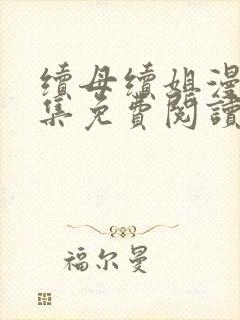 續母續姐漫
集免費閱讀
福尔曼